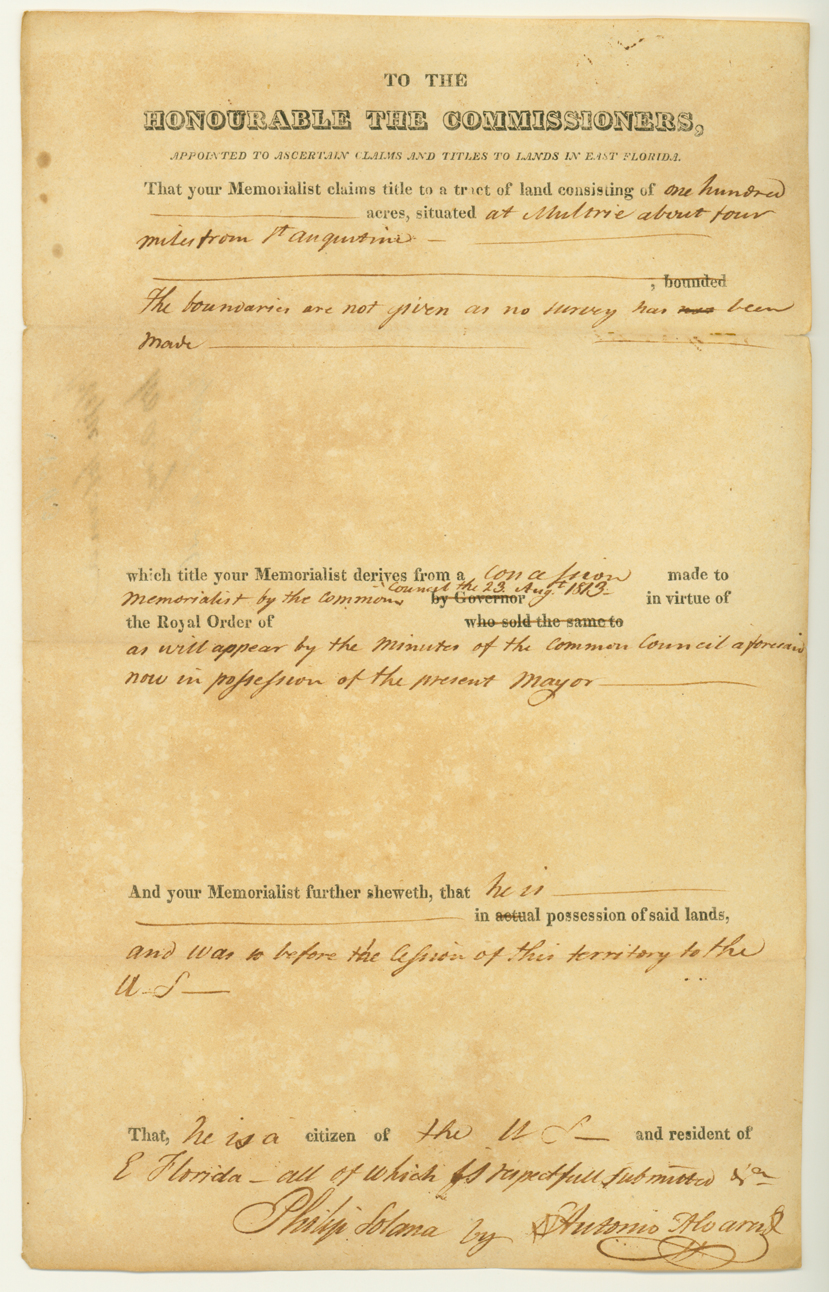 TO THE
HONOURABLE THE COMMISSIONERS,
APPOINTED TO ASCERTAIN CLAIMS AND TITLES TO LANDS IN EAST FLORIDA.
That your Memorialist claims title to a tract of land consisting of one hundred
acres, situated at Multrie about four
miles from St Augustine —
, bounded
The boundaries are not given as no survey has been
made
which title your Memorialist derives from a concession made to
Council the 23 Augt 1813
memorialist by the common by Governor in virtue of
the Royal Order of who sold the same to
as will appear by the minutes of the Common Council aforesaid
now in possession of the present Mayor
And your Memorialist further sheweth, that he is
in actual possession of said lands,
and was so before the Cession of this territory to the
U S —
That, he is a citizen of the U S — and resident of
E Florida — all of which is respectfull submitted &a
Philip Solana by Antonio Alvarez